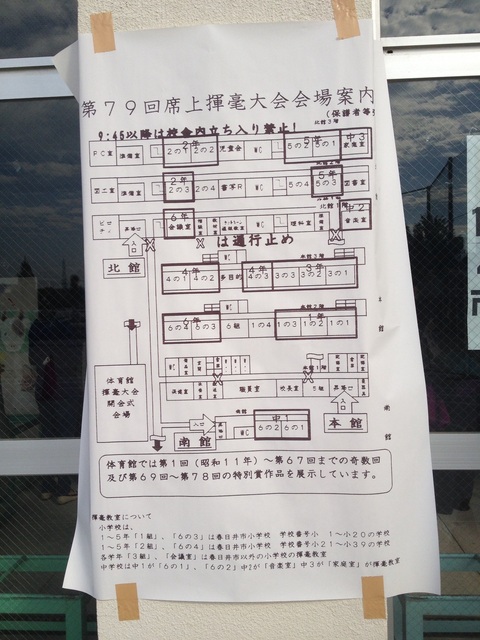 第79回席上揮毫大会会場案内
(保護者等
9:45以降は校舎内立ち入り禁止!
北館3階
PC室 準備室 2年 2の1 2の2 児童会 WC 5年 5の2 5の1 中3 家庭室
図工室 準備室 2年 2の3 2の4 書写R WC 5の4 5年 5の3 図書室
北館1階
ピロティ 昇降口 6年 会議室 WC 理科室 中2 音楽室
入口
は通行止め
北館
本館3階
WC
4年 4の1 4の2 多目的 4年 4の3 3年 3の3 3の2 3の1
本館2階
WC
6年 6の4 6の3 6組 1の4 1年 1の3 1の2 1の1
本館1階
WC
保健室 職員室 校長室 5組 昇降口
体育館
揮毫大会
開会式
会場
入口
南館
WC
中1
6の2 6の1
入口
本館
南館
体育館では第1回(昭和11年)~第67回までの奇数回
及び第69回~第78回の特別賞作品を展示しています。
揮毫教室について
小学校は、
1~5年「1組」、「6の3」は春日井市小学校 学校番号小 1~小20の学校
1~5年「2組」、「6の4」は春日井市小学校 学校番号小21~小39の学校
各学年「3組」、「会議室」は春日井市以外の小学校の揮毫教室
中学校は中1が「6の1」、「6の2」中2が「音楽室」中3が「家庭室」が揮毫教室